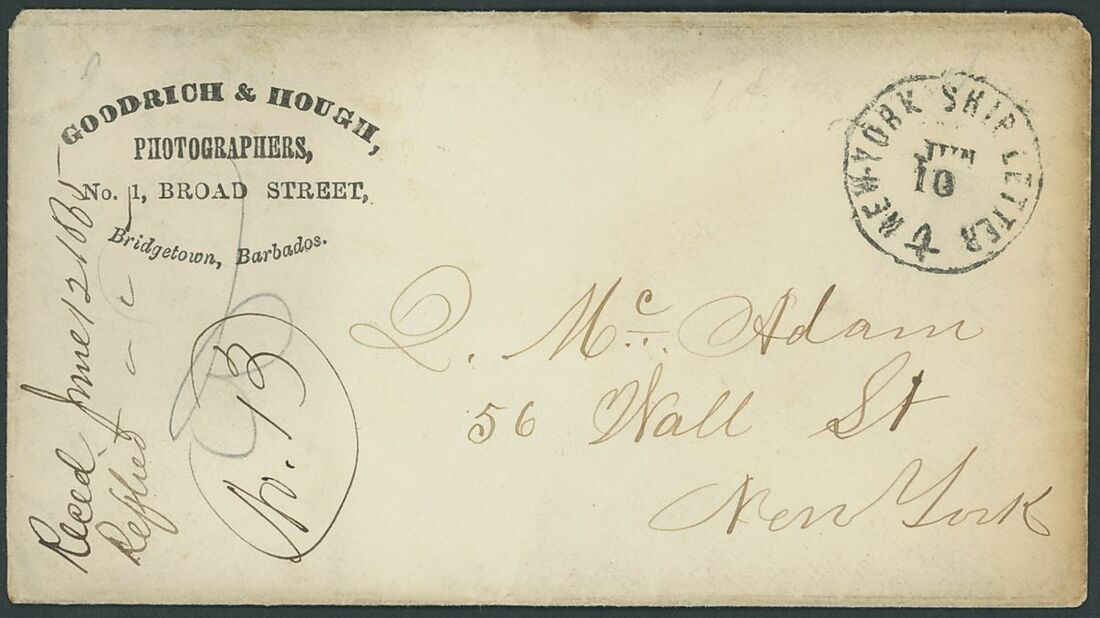 GOODRICH & HOUGH,
PHOTOGRAPHERS,
No. 1, BROAD STREET,
Bridgetown, Barbados.
NEW-YORK SHIP LETTER
JUN
10
D. Mc. Adam
56 Wall St
New York
Reced. June 12
Replied " "
No. 13